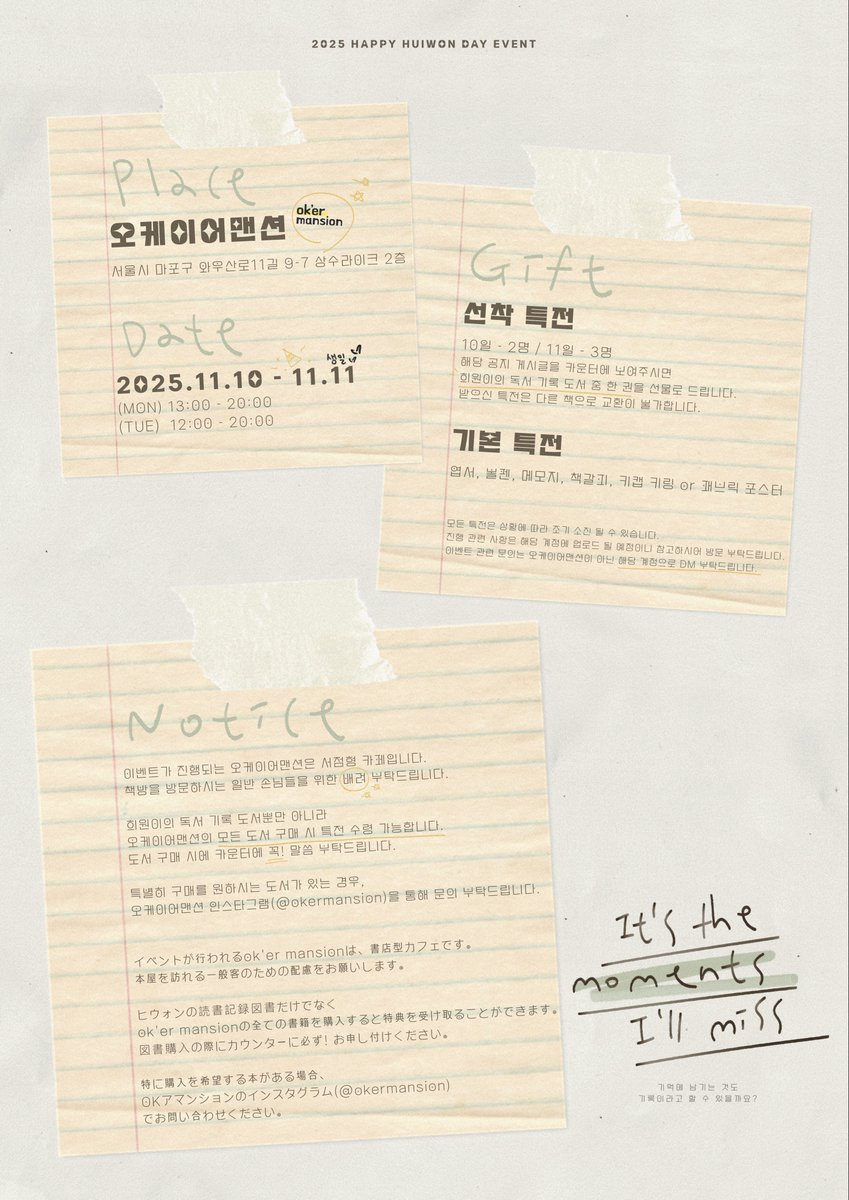 2025 HAPPY HUIWON DAY EVENT
Place
오케이어맨션
ok'er
mansion
서울시 마포구 와우산로11길 9-7 상수라이크 2층
Date
생일
2025.11.10 - 11.11
(MON) 13:00 - 20:00
(TUE) 12:00 - 20:00
Gift
선착 특전
10일 - 2명 / 11일 - 3명
해당 공지 게시글을 카운터에 보여주시면
희원이의 독서 기록 도서 중 한 권을 선물로 드립니다.
받으신 특전은 다른 책으로 교환이 불가합니다.
기본 특전
엽서, 볼펜, 메모지, 책갈피, 키캡 키링 or 패브릭 포스터
모든 특전은 상황에 따라 조기 소진 될 수 있습니다.
진행 관련 사항은 해당 계정에 업로드 될 예정이니 참고하시어 방문 부탁드립니다.
이벤트 관련 문의는 오케이어맨션이 아닌 해당 계정으로 DM 부탁드립니다.
Notice
이벤트가 진행되는 오케이어맨션은 서점형 카페입니다.
책방을 방문하시는 일반 손님들을 위한 배려 부탁드립니다.
희원이의 독서 기록 도서뿐만 아니라
오케이어맨션의 모든 도서 구매 시 특전 수령 가능합니다.
도서 구매 시에 카운터에 꼭! 말씀 부탁드립니다.
특별히 구매를 원하시는 도서가 있는 경우,
오케이어맨션 인스타그램(@okermansion)을 통해 문의 부탁드립니다.
イベントが行われるok'er mansionは、書店型カフェです。
本屋を訪れる一般客のための配慮をお願いします。
ヒウォンの読書記録図書だけでなく
ok'er mansionの全ての書籍を購入すると特典を受け取ることができます。
図書購入の際にカウンターに必ず! お申し付けください。
特に購入を希望する本がある場合、
OKアマンションのインスタグラム(@okermansion)
でお問い合わせください。
It's the
moments
I'll miss
기억에 남기는 것도
기록이라고 할 수 있을까요?